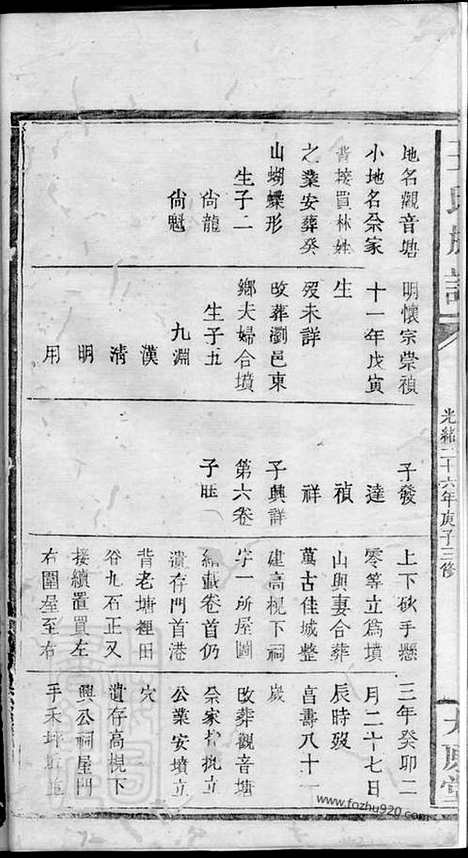 王氏族譜
光緒二十六年庚子三修
太原堂
地名觀音塘
小地名佘家
背接買林姓
之業安葬癸
山蝴蝶形
生子二
尙龍
尙魁
明懷宗崇禎
十一年戊寅
生
歿未詳
改葬瀏邑東
鄉夫婦合墳
生子五
九淵
漢
清
明
用
子發
達
禎
祥
子興詳
第六卷
子旺
上下砍手懸
零等立爲墳
山與妻合葬
萬古佳城整
建高梘下祠
宇一所屋圖
繪載卷首仍
遺存門首港
背老塘裡田
谷九石正又
接續置買左
右圍屋至右
三年癸卯二
月二十七日
辰時歿
昌壽八十一
歲
改葬觀音塘
佘家背執立
公業安墳立
穴
遺存高梘下
興公祠屋門
手禾坪
www.fozhu920.com